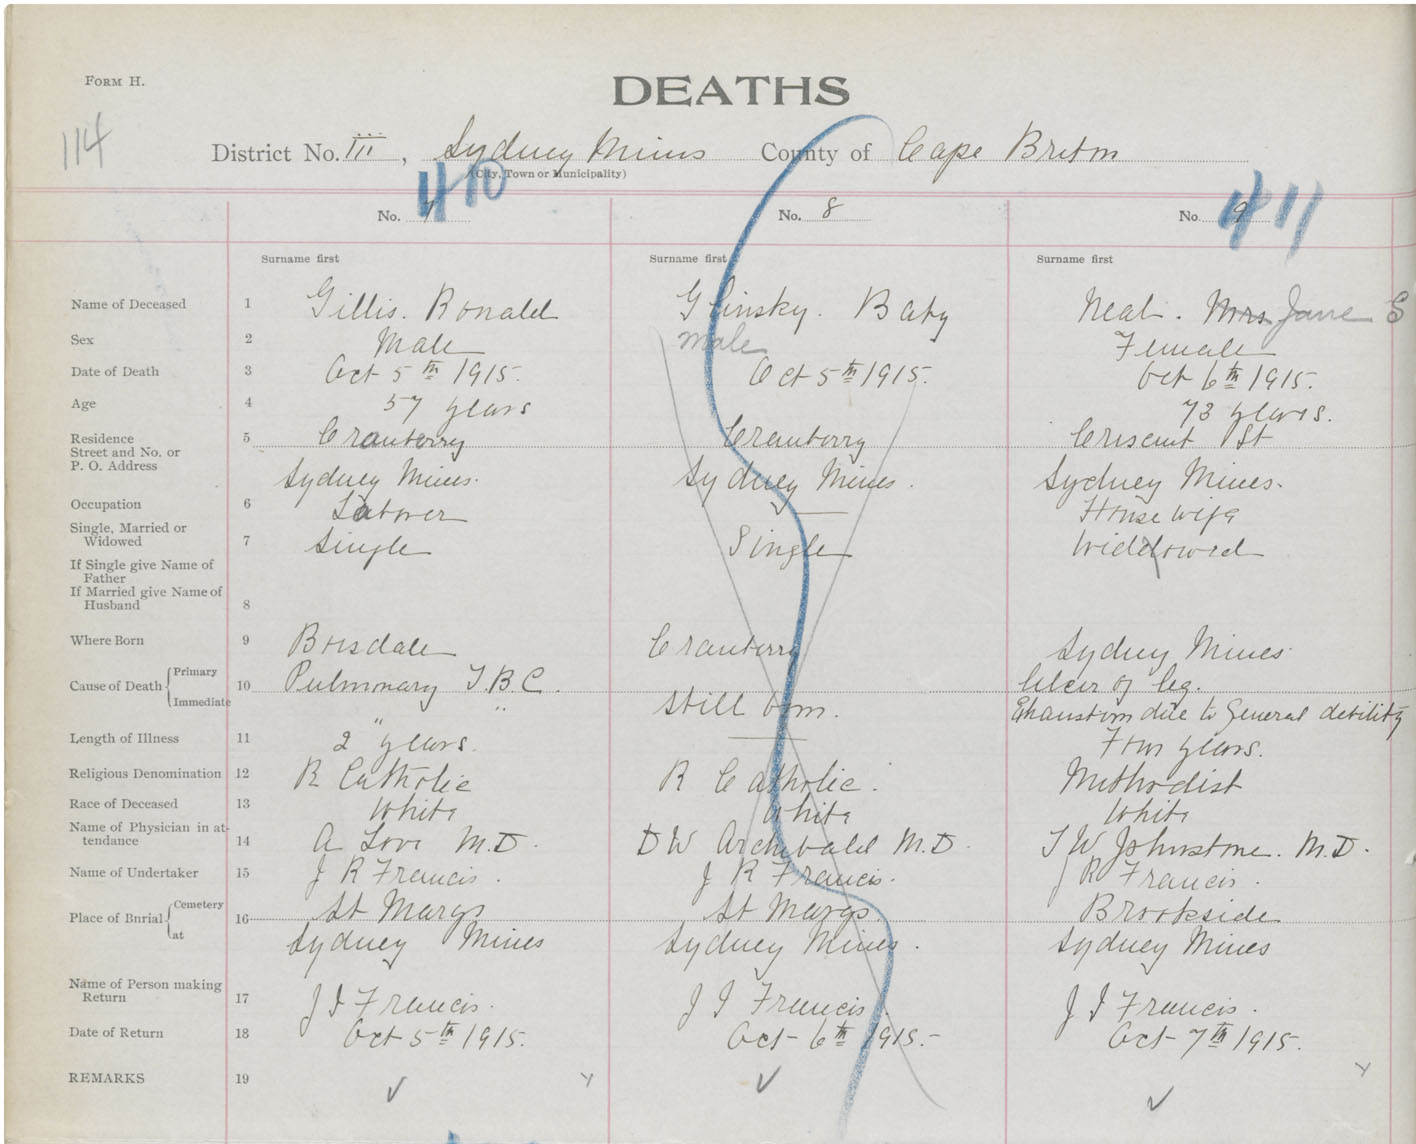 FORM H.
DEATHS
114
District No. III, Sydney Mines County of Cape Breton
(City, Town or Municipality)
410 411
No. 7 No. 8 No. 9
Surname first Surname first Surname first
Name of Deceased 1 Gillis. Ronald Glinsky. Baby Neal. Mrs Jane S
Sex 2 Male male Female
Date of Death 3 Oct 5th 1915. Oct 5th 1915. Oct 6th 1915.
Age 4 57 years 73 years.
Residence 5 Cranberry Cranberry Crescent St
Street and No. or
P. O. Address Sydney Mines. Sydney Mines. Sydney Mines.
Occupation 6 Laborer — House wife
Single, Married or
Widowed 7 Single Single Widdowed
If Single give Name of
Father
If Married give Name of
Husband 8
Where Born 9 Boisdale Cranberry Sydney Mines
Cause of Death { Primary 10 Pulmonary T.B.C. Ulcer of leg.
Immediate " " Still born. Exhaustion due to General debility
Length of Illness 11 2 years. — Four years.
Religious Denomination 12 R Catholic R Catholic. Methodist
Race of Deceased 13 White White White
Name of Physician in at-
tendance 14 A Love M.D. D W Archibald M.D. T W Johnstone. M.D.
Name of Undertaker 15 J R Francis. J R Francis. J R Francis.
Place of Burial { Cemetery 16 St Marys St Marys. Brookside
at Sydney Mines Sydney Mines. Sydney Mines
Name of Person making
Return 17 J I Francis. J I Francis. J I Francis.
Date of Return 18 Oct 5th 1915. Oct – 6th 1915.– Oct – 7th 1915.
REMARKS 19 ✓ ✓ ✓